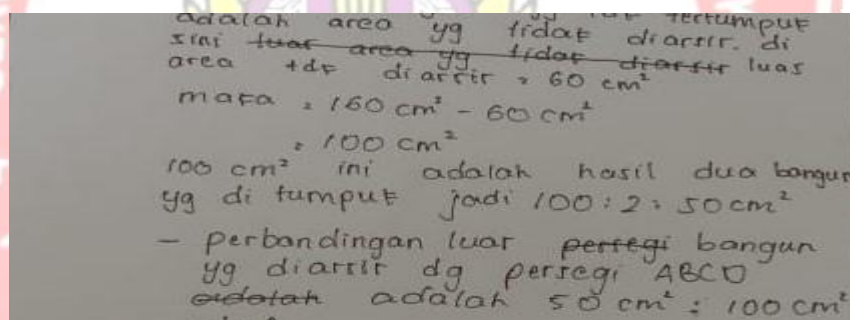 adalah area yg tidak tertumpuk
sini luar area yg tidak diarsir. di
area tdk diarsir = 60 cm² luas
maka = 160 cm² - 60 cm²
= 100 cm²
100 cm² ini adalah hasil dua bangun
yg di tumpuk jadi 100 : 2 = 50 cm²
- perbandingan luas persegi bangun
yg diarsir dg persegi ABCD
adalah adalah 50 cm² : 100 cm²